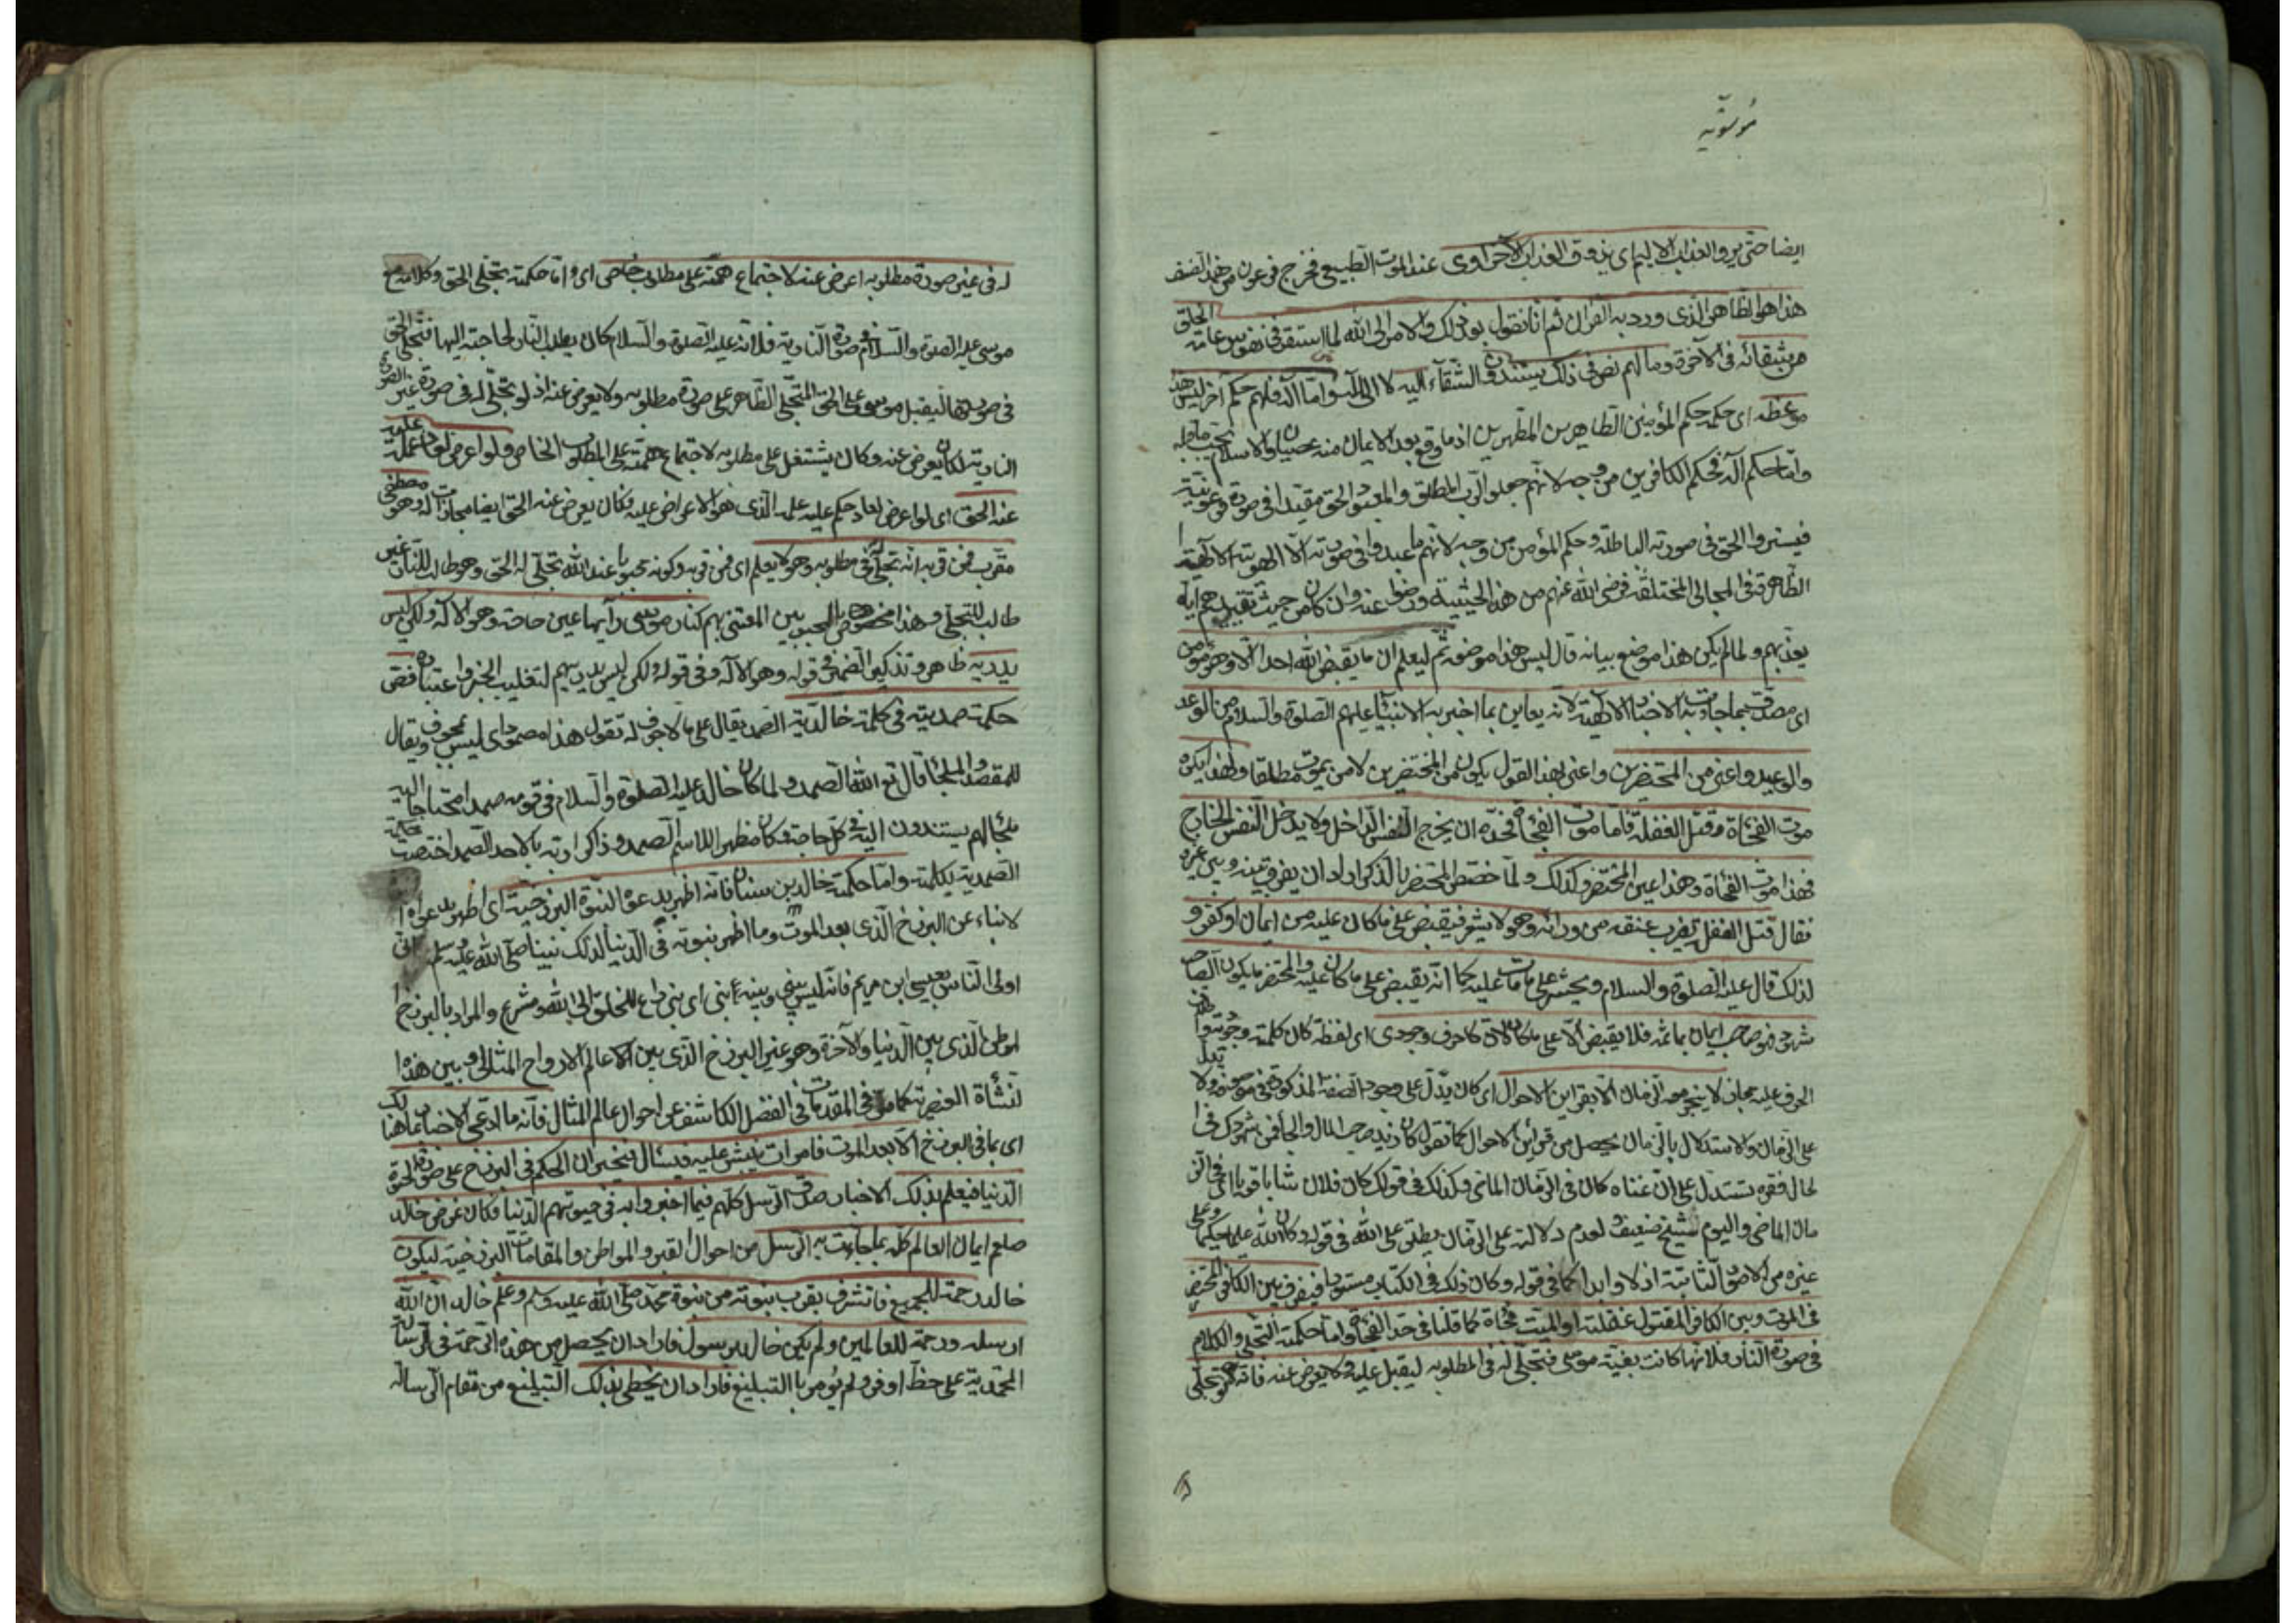 موسوية
ايضا حتى يروا العذاب الاليم اى يذوق العذاب الاخراوى عند الموت الطبيعى فخرج فرعون من هذا الصنف
هذا هو الظاهر الذى ورد به القران ثم انا نقول بعد ذلك والامر الى الله لما استقر فى نفوس عامة الخلق
من شقائه فى الآخرة وما لهم نص فى ذلك يستندون الشقاء اليه لا الى آله واما آله فلهم حكم آخر ليس هذا
موضعه اى حكمه حكم المؤمنين الطاهرين المطهرين اذ ما وقع بعد الايمان منه عصيان والاسلام يجب ما قبله
واما حكم آله فحكم الكافرين من وجه لانهم جعلوا الرب المطلق والمعبود الحق مقيدا فى صورة فرعونية
فيستروا الحق فى صورته الباطلة وحكم المؤمن من وجه لانهم ما عبدوا فى صورته الا الهوية الالهية
الظاهرة فى المجالى المختلفة فرضى الله عنهم من هذه الحيثية ورضوا عنه وان كان من حيث تقييدهم اياه
يعذبهم ولما لم يكن هذا موضع بيانه قال ليس هذا موضعه ثم ليعلم ان ما يقبض الله احدا الا وهو مؤمن
اى مصدق بما جاءت به الاخبار الالهية لانه يعاين بما اخبر به الانبياء عليهم الصلوة والسلام من الوعد
والوعيد واعنى من المحتضرين واعنى بهذا القول يكون من المحتضرين لا من يموت مطلقا ولهذا يكره
موت الفجأة وقتل الغفلة فاما موت الفجأة فحده ان يخرج النفس الداخل ولا يدخل النفس الخارج
فهذا موت الفجاة وهذا غير المحتضر وكذلك ولما خصص المحتضر بالذكر اراد ان يفرق بينه وبين غيره
فقال قتل الغفلة يضرب عنقه من ورائه وهو لا يشعر فيقبض على ما كان عليه من ايمان او كفر و
لذلك قال عليه الصلوة والسلام ويحشر على ما مات عليه كما انه يقبض على ما كان عليه والمحتضر ما يكون الا صاحب
شهود فهو صاحب ايمان بما ثمه فلا يقبض الا على ما كان لان كان حرف وجودى اى لفظة كان كلمة وجودية
الحرف عليه مجاز لا ينجر معه الزمان الا بقراين الاحوال اى كان يدل على وجود الصفة المذكورة فى موصوفه ولا يدل
على الزمان والاستدلال بالزمان يحصل من قراين الاحوال كما تقول كان زيد صاحب المال والجاه فمن شهودك فى ا
لحال فقره تستدل على ان غناه كان فى الزمان الماضى وكذلك فى قولك كان فلان شابا قويا اى فى الز
مان الماضى واليوم شيخ ضعيف ولعدم دلالته على الزمان يطلق على الله فى قوله وكان الله عليما حكيما وعلى
غيره من الامور الثابتة اذلا وابدا كما فى قوله وكان ذلك فى الكتاب مستورا فيفرق بين الكافر المحتضر
فى الموت وبين الكافر المقتول غفلة او الميت فجاة كما قلنا فى حد الفجأة واما حكمة التجلى والكلام
فى صورة النار فلانها كانت بغية موسى فتجلى له فى مطلوبه ليقبل عليه ولا يعرض عنه فانه لو تجلى
له فى غير صورة مطلوبه اعرض عنه لاجتماع همته على مطلوب خاص اى واما حكمة تجلى الحق وكلامه مع
موسى عليه الصلوة والسلام فى صورة النارية فلانه عليه الصلوة والسلام كان يطلب النار لحاجته اليها فتجلى الحق
فى صورتها ليقبل موسى على الحق المتجلى الظاهر على صورة مطلوبه ولا يعرض عنه اذ لو تجلى له فى صورة غير الصورة
النارية لكان يعرض عنه وكان يشتغل على مطلوبه لاجتماع همته على المطلوب الخاص ولو اعرض لعاد عمله عليه
عنه الحق اى لو اعرض لعاد حكم عليه علمه الذى هو الاعراض عليه فكان يعرض عنه الحق ايضا مجازات له وهو مصطفى
مقرب فمن قربه انه تجلى له فى مطلوبه وهو لا يعلم اى فمن قربه وكونه محبوبا عند الله تجلى له الحق وهو طالب للنار غير
طالب للتجلى وهذا مخصوص بالمحبوبين المعتنى بهم كنار موسى رآيها عين حاجته وهو الاله ولكن ليس
يدريه ظاهر وتذكير الضمير فى قوله وهو الاله وفى قوله ولكن ليس يدريه لتغليب الخبر واعتباره فص
حكمة صمدية فى كلمة خالدية الصمد يقال على ما لا جوف له تقول هذا مصمود اى ليس بمجوف ويقال
للمقصد والملجأ قال تع الله الصمد ولما كان خالد عليه الصلوة والسلام فى قومه صمدا محتاجا اليه
ملجأ لهم يستندون اليه فى كل حاجة وكان مظهرا للاسم الصمد وذاكرا ربه بالاحد الصمد اختصت حكمته
الصمدية بكلمته واما حكمة خالد بن سنان فانه اظهر بدعواه النبوة البرزخية اى اظهر بدعواه ا
لانباء عن البرزخ الذى بعد الموت وما اظهر نبوته فى الدنيا لذلك نبينا صلى الله عليه وسلم انى
اولى الناس بعيسى ابن مريم فانه ليس بينى وبينه نبى اى نبى داع للخلق الى الله ومشرع والمراد بالبرزخ ا
لموطن الذى بين الدنيا والآخرة وهو غير البرزخ الذى بين عالم الارواح المثالى وبين هذه ا
لنشأة العنصرية كما مر فى المقدمات فى الفصل الكاشف عن احوال عالم المثال فانه ما ادعى الاخبار بما هنالك
اى بما فى البرزخ الا بعد الموت فامر ان ينبش عليه فيسأل فيخبر ان الحكم فى البرزخ على صورة الحيوة
الدنيا فيعلم بذلك الاخبار صدق الرسل كلهم فيما اخبروا به فى حيوتهم الدنيا فكان غرض خالد
صلعم ايمان العالم كله بما جاءت به الرسل من احوال القبر والمواطن والمقامات البرزخية ليكون
خالد رحمة للجميع فانه شرف بقرب نبوته من نبوة محمد صلى الله عليه وسلم وعلم خالد ان الله
ارسله ورحمة للعالمين ولم يكن خالد برسول فاراد ان يحصل من هذه الرحمة فى الرسالة
المحمدية على حظ اوفر ولم يؤمر بالتبليغ فاراد ان يحظى بذلك التبليغ من مقام الرسالة